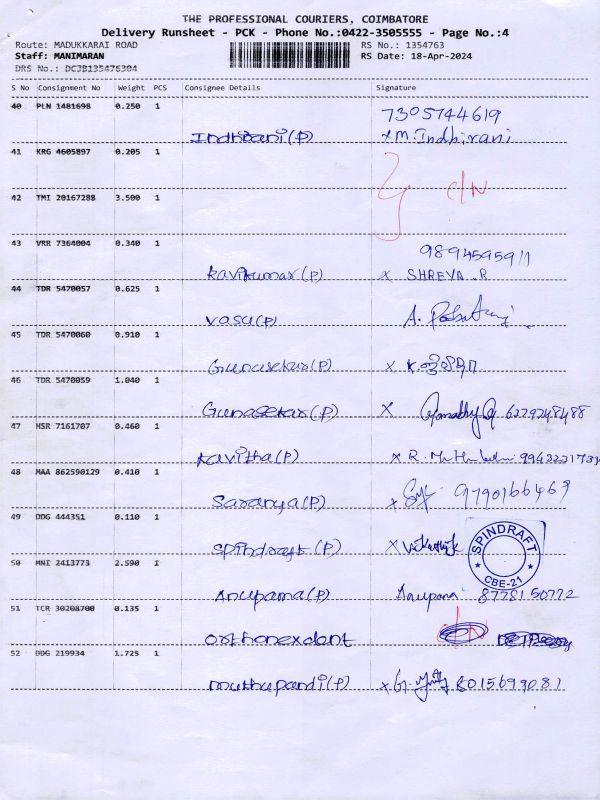 THE PROFESSIONAL COURIERS, COIMBATORE
Delivery Runsheet - PCK - Phone No.:0422-3505555 - Page No.:4
Route: MADUKKARAI ROAD RS No.: 1354763
Staff: MANIMARAN RS Date: 18-Apr-2024
DRS No.: DCJB135476304
S No Consignment No Weight PCS Consignee Details Signature
40 PLN 1481698 0.250 1 7305744619
Indhirani(P) x M. Indhirani
41 KRG 4605897 0.205 1
C/N
42 TMI 20167288 3.500 1
43 VRR 7364004 0.340 1 9894595911
Ravikumar(P) x SHREYA.R
44 TDR 5470057 0.625 1
Vasu(P) A.
45 TDR 5470060 0.910 1
Gunasekar(P) x
46 TDR 5470059 1.040 1
Gunasekar(P) x 6279248488
47 HSR 7161707 0.460 1
Kavitha(P) x R.
48 MAA 862590129 0.410 1
Saranya(P) x 9790166469
49 DDG 444351 0.110 1
Spindraft (P) x SPINDRAFT
CBE-21
50 MNI 2413773 2.590 1
Anupama(P) Anupama 8778150772
51 TCR 30208700 0.135 1
Orthonexdent
52 DDG 219934 1.725 1
Muthupandi(P) x 8015699081